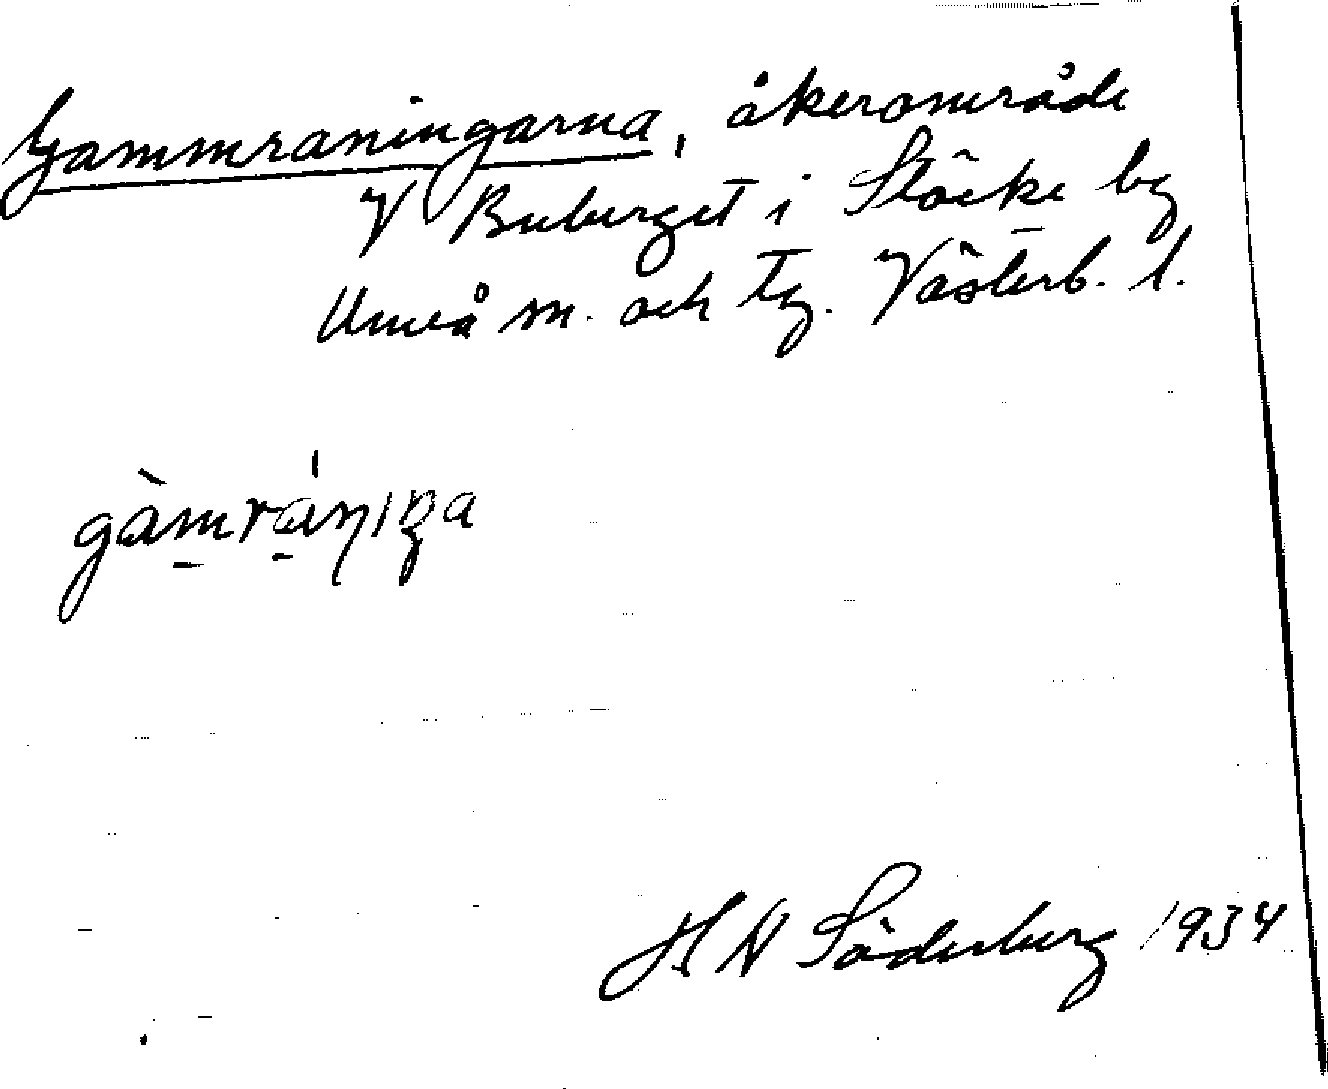 Gammraningarna, åkerområde
V Buberget i Stöcke by
Umeå sn. och tg. Västerb. l.
gàmrániŋa
H N Söderberg 1934